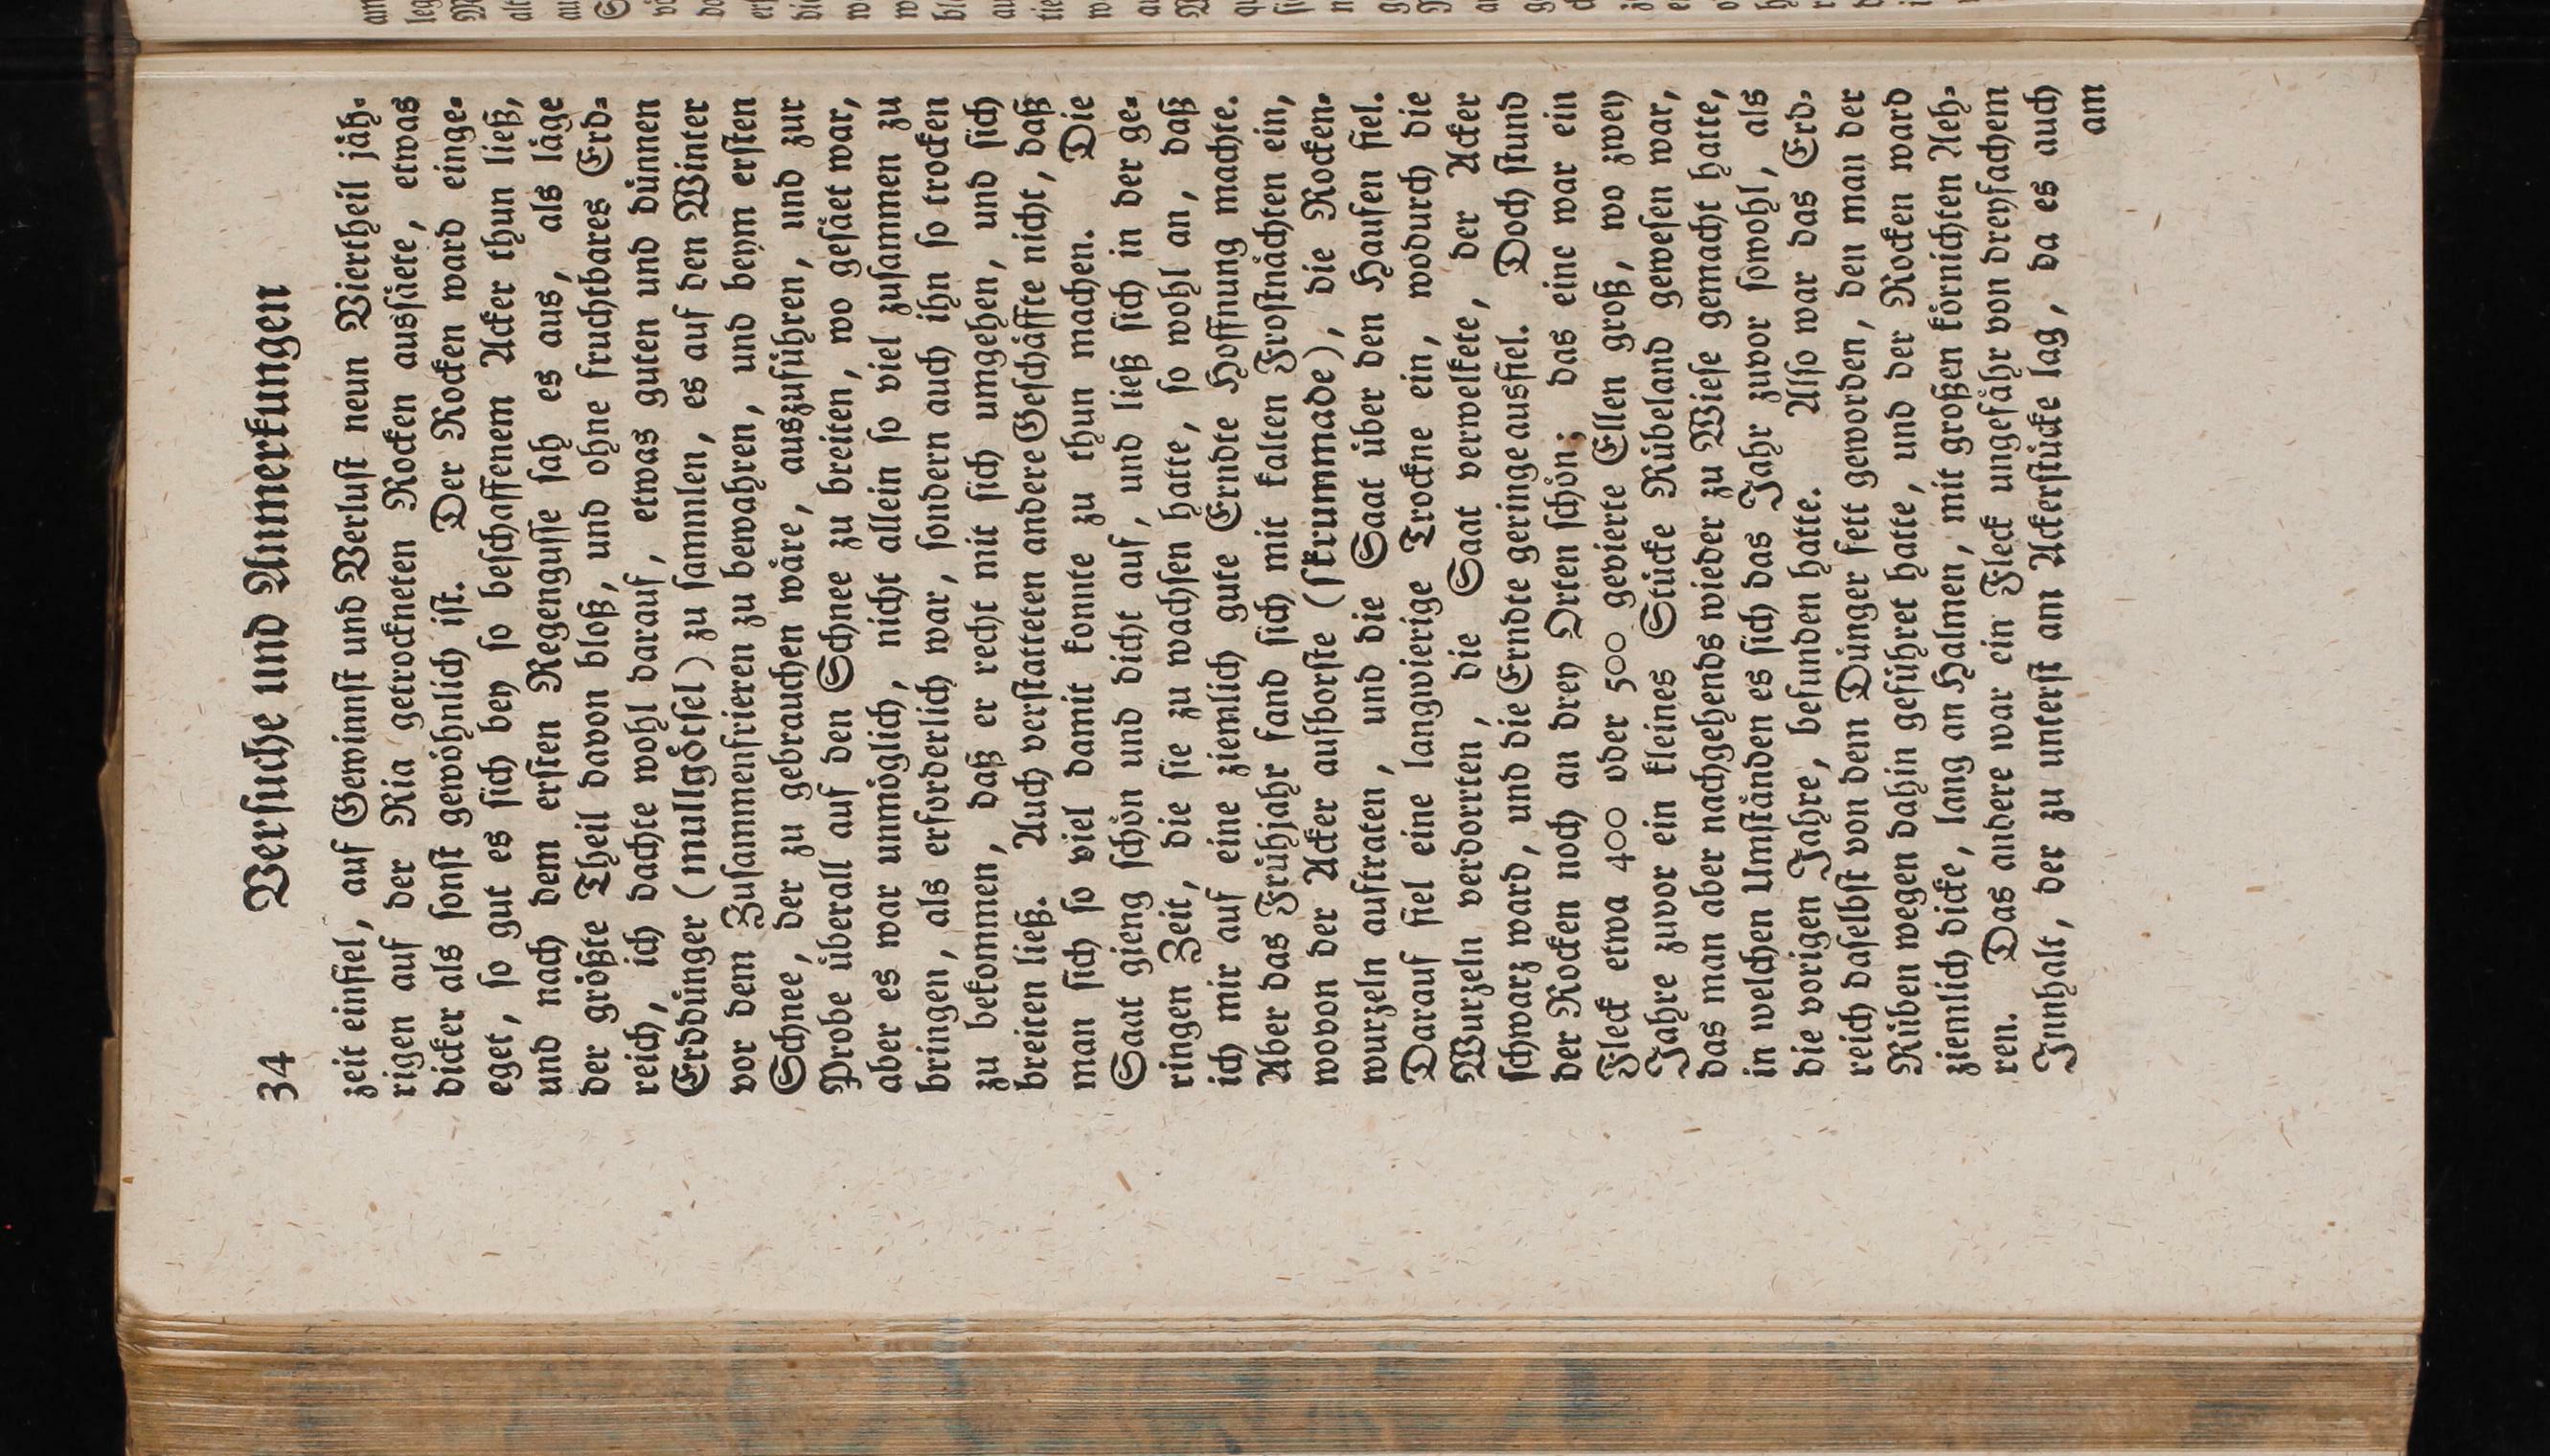 34 Versuche und Anmerkungen
zeit einfiel, auf Gewinnst und Verlust neun Viertheil jäh-
rigen auf der Ria getrockneten Rocken aussäete, etwas
dicker als sonst gewöhnlich ist. Der Rocken ward einge-
eget, so gut es sich bey so beschaffenem Acker thun ließ,
und nach dem ersten Regengusse sah es aus, als läge
der größte Theil davon bloß, und ohne fruchtbares Erd-
reich, ich dachte wohl darauf, etwas guten und dünnen
Erddünger (mullgötsel) zu sammlen, es auf den Winter
vor dem Zusammenfrieren zu bewahren, und beym ersten
Schnee, der zu gebrauchen wäre, auszuführen, und zur
Probe überall auf den Schnee zu breiten, wo gesäet war,
aber es war unmöglich, nicht allein so viel zusammen zu
bringen, als erforderlich war, sondern auch ihn so trocken
zu bekommen, daß er recht mit sich umgehen, und sich
breiten ließ. Auch verstatteten andere Geschäffte nicht, daß
man sich so viel damit konnte zu thun machen. Die
Saat gieng schön und dicht auf, und ließ sich in der ge-
ringen Zeit, die sie zu wachsen hatte, so wohl an, daß
ich mir auf eine ziemlich gute Erndte Hoffnung machte.
Aber das Frühjahr fand sich mit kalten Frostnächten ein,
wovon der Acker aufborste (skrummade), die Rocken-
wurzeln auftraten, und die Saat über den Haufen fiel.
Darauf fiel eine langwierige Trockne ein, wodurch die
Wurzeln verdorrten, die Saat verwelkete, der Acker
schwarz ward, und die Erndte geringe ausfiel. Doch stund
der Rocken noch an drey Orten schön; das eine war ein
Fleck etwa 400 oder 500 gevierte Ellen groß, wo zwey
Jahre zuvor ein kleines Stücke Rübeland gewesen war,
das man aber nachgehends wieder zu Wiese gemacht hatte,
in welchen Umständen es sich das Jahr zuvor sowohl, als
die vorigen Jahre, befunden hatte. Also war das Erd-
reich daselbst von dem Dünger fett geworden, den man der
Rüben wegen dahin geführet hatte, und der Rocken ward
ziemlich dicke, lang an Halmen, mit großen körnichten Aeh-
ren. Das andere war ein Fleck ungefähr von dreyfachem
Innhalt, der zu unterst am Ackerstücke lag, da es auch
am